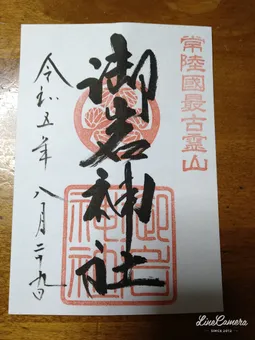 常陸國最古霊山
御岩神社
令和五年 八月二十九日
御岩神社
LineCamera
SINCE 2012